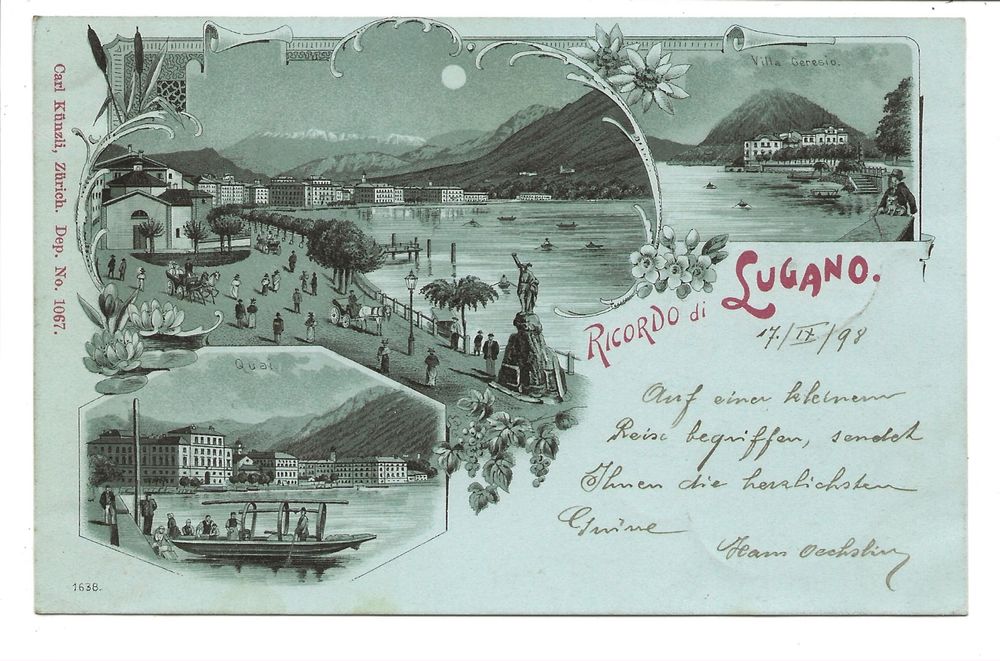 Carl Künzli, Zürich. Dep. No. 1067.
Villa Ceresio.
Quai
RICORDO di LUGANO.
17./IX/98
Auf einer kleinen
Reise begriffen, sendet
Ihnen die herzlichsten
Grüsse
Hans Oechslin
1638.